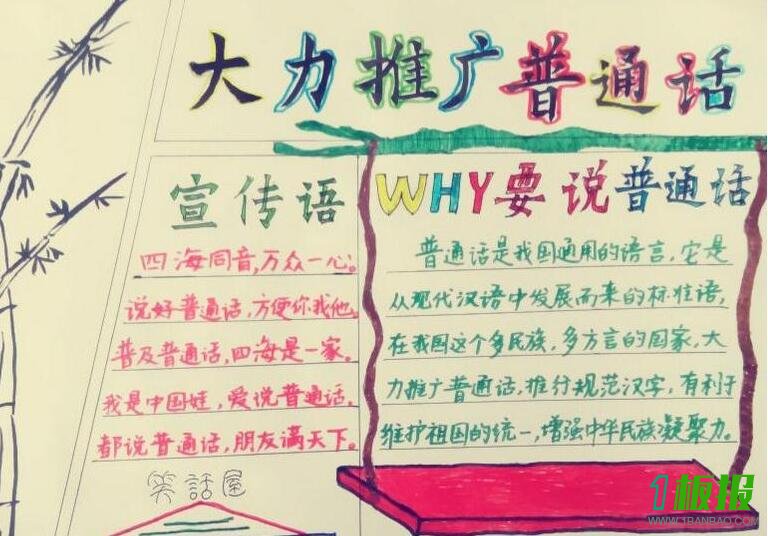 大力推广普通话
宣传语
四海同音,万众一心。
说好普通话,方便你我他,
普及普通话,四海是一家。
我是中国娃,爱说普通话,
都说普通话,朋友满天下。
笑話屋
WHY要说普通话
普通话是我国通用的语言,它是
从现代汉语中发展而来的标准语,
在我国这个多民族,多方言的国家,大
力推广普通话,推行规范汉字,有利于
维护祖国的统一,增强中华民族凝聚力。
1板报
WWW.1BANBAO.COM